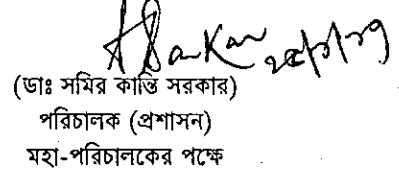 (ডাঃ সমির কান্তি সরকার)
পরিচালক (প্রশাসন)
মহা-পরিচালকের পক্ষে